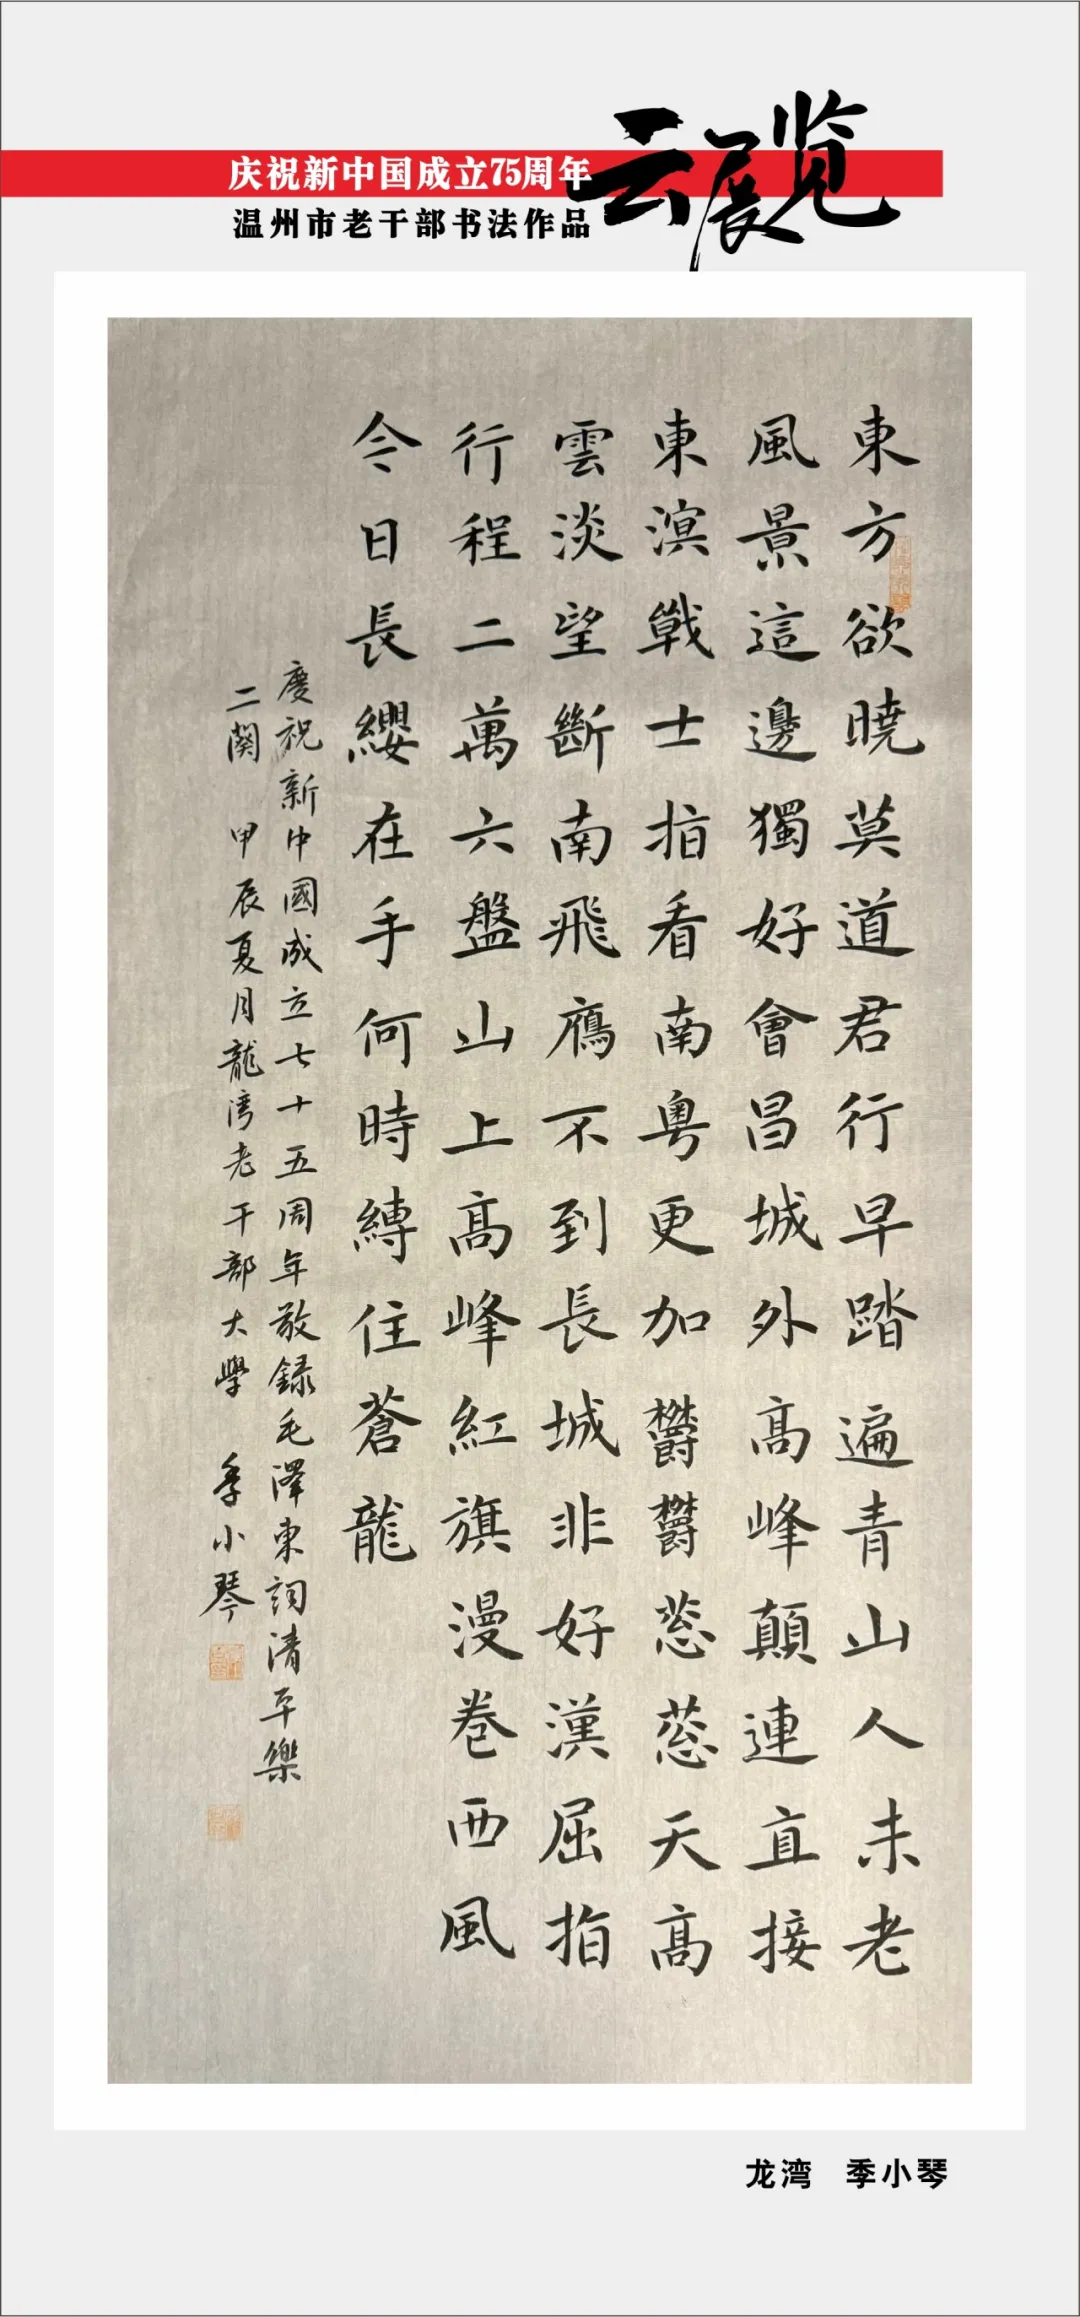 庆祝新中国成立75周年
温州市老干部书法作品
云展览
東方欲曉莫道君行早踏遍青山人未老
風景這邊獨好會昌城外高峰顛連直接
東溟戰士指看南粵更加鬱鬱蔥蔥天高
雲淡望斷南飛鴈不到長城非好漢屈指
行程二萬六盤山上高峰紅旗漫卷西風
今日長纓在手何時縛住蒼龍
慶祝新中國成立七十五周年敬録毛澤東詞清平樂
二闋 甲辰夏月龍湾老干部大學 季小琴
龙湾 季小琴